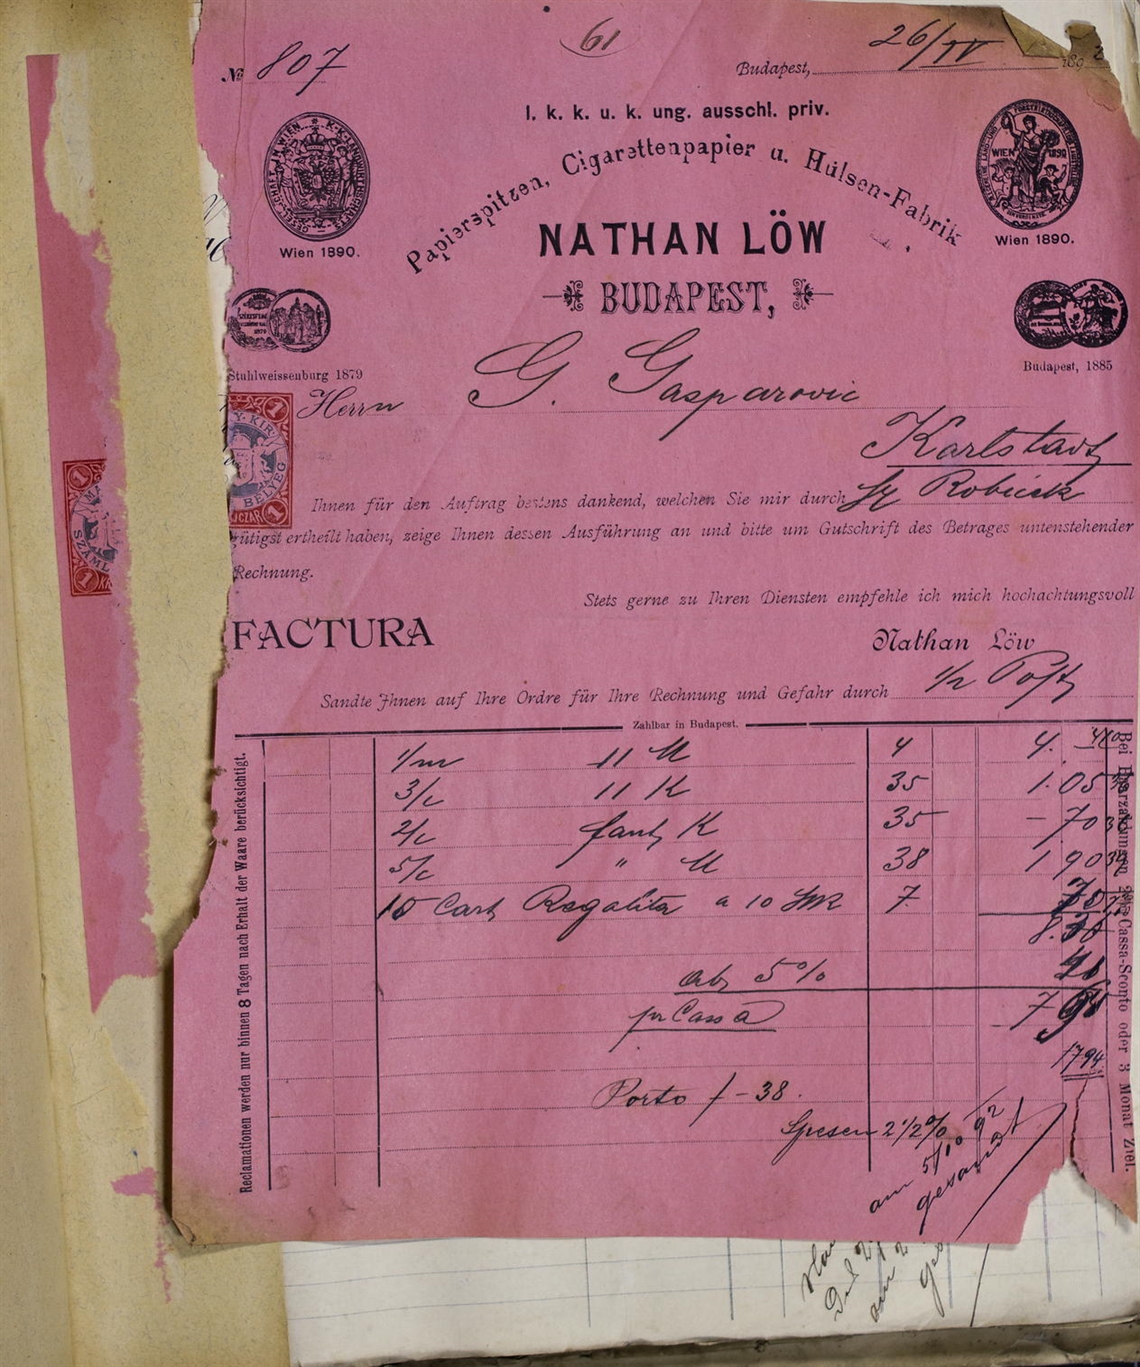 61
№ 807
Budapest, 26/IV 189
I. k. k. u. k. ung. ausschl. priv.
Papierspitzen, Cigarettenpapier u. Hülsen-Fabrik
NATHAN LÖW
BUDAPEST,
WIEN 1890
Wien 1890.
Wien 1890.
Stuhlweissenburg 1879
Budapest, 1885
Herrn G. Gasparovic
Karlstadt
Ihnen für den Auftrag bestens dankend, welchen Sie mir durch
gütigst ertheilt haben, zeige Ihnen dessen Ausführung an und bitte um Gutschrift des Betrages untenstehender
Rechnung.
Stets gerne zu Ihren Diensten empfehle ich mich hochachtungsvoll
FACTURA
Nathan Löw
Sandte Ihnen auf Ihre Ordre für Ihre Rechnung und Gefahr durch Post
Zahlbar in Budapest.
1/m 11 M 4 4.
3/c 11 K 35 1.05
2/c fant K 35 – 70
5/c " M 38 1 90
10 Cart Regalita a 10 7
8.
ab 5%
pr Cassa 7
1794
Porto f – 38.
Spesen 2 1/2%
am 5/10 92
gesandt
Reclamationen werden nur binnen 8 Tagen nach Erhalt der Waare berücksichtigt.
Bei Baarzahlung Cassa-Sconto oder 3 Monat Ziel.